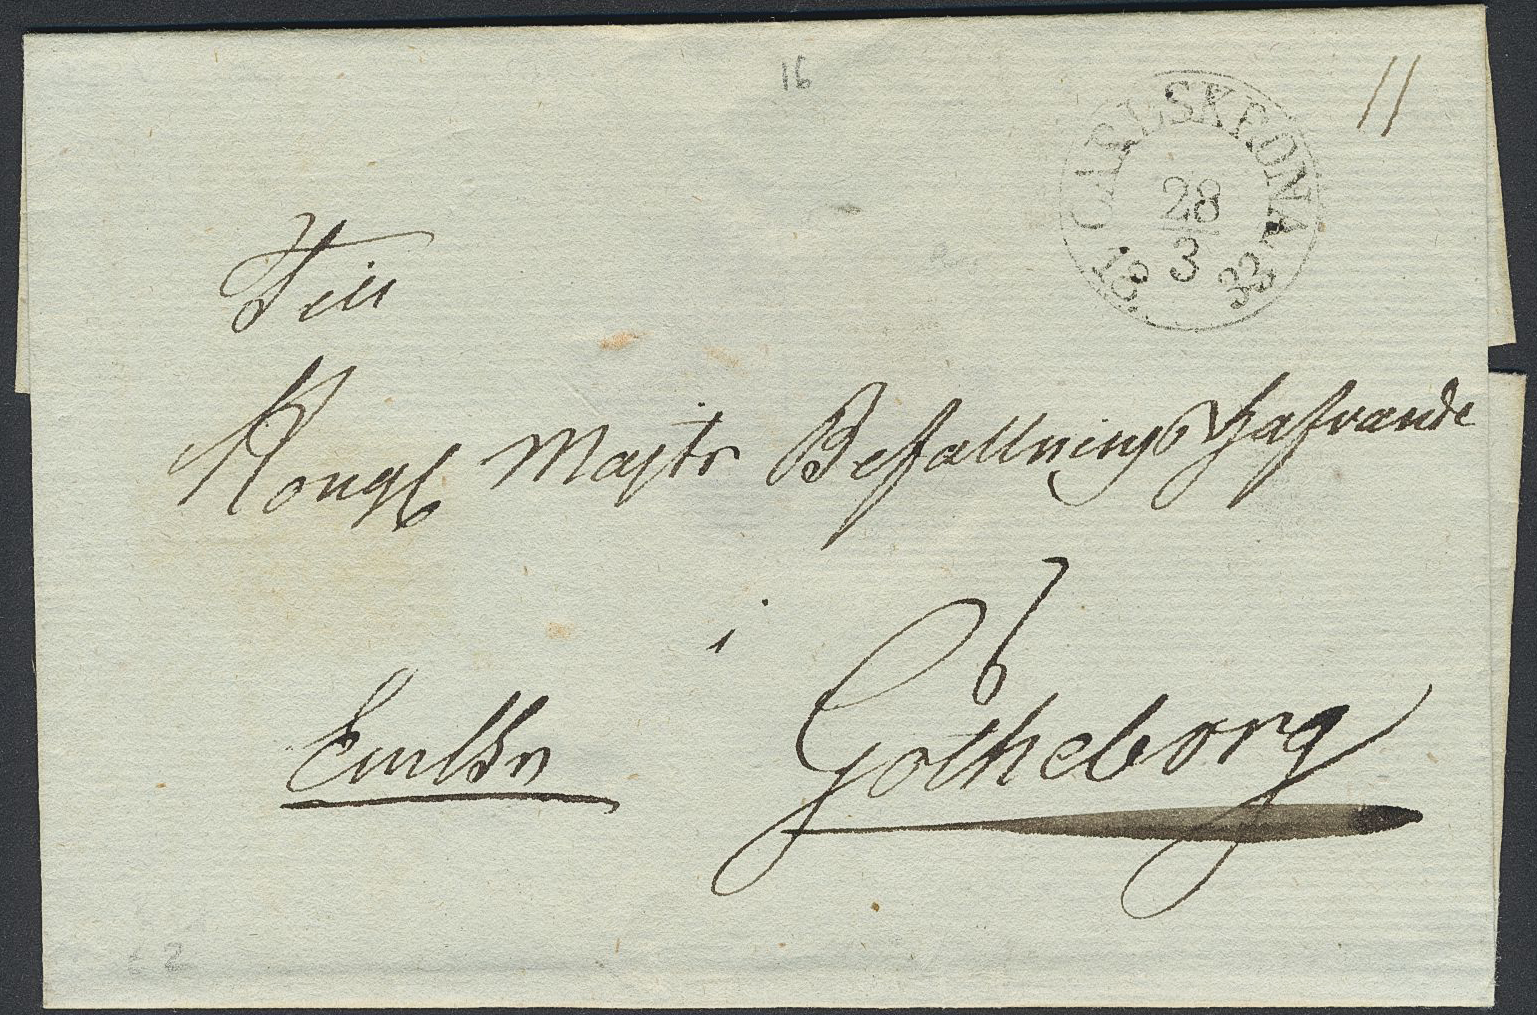 16
11
CARLSKRONA
28
3
18 33
Till
Kongl Majts Befallningshafvande
i
Götheborg